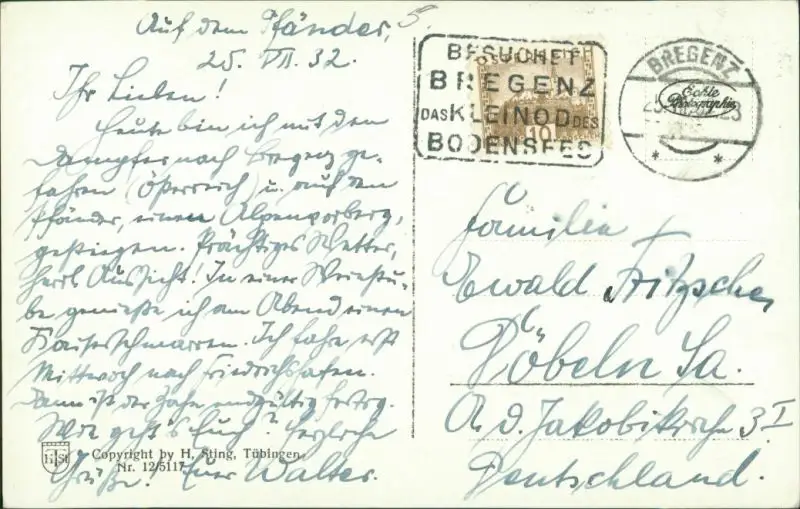 Auf dem Pfänder, 5.
25. VII. 32.
Ihr Lieben!
Heute bin ich mit dem
Dampfer nach Bregenz ge-
fahren (Österreich) u. auf den
Pfänder, einen Alpenvorberg,
gestiegen. Prächtiges Wetter,
herrl. Aussicht. In einer Weinstu-
be genieße ich am Abend einen
Kaiserschmarren. Ich fahre erst
Mittwoch nach Friedrichshafen.
Dann ist der Zahn endgültig fertig.
Wie geht's Euch? Herzliche
Grüße! Euer Walter.
HSt
Copyright by H. Sting, Tübingen
Nr. 12/5117
BESUCHET
BREGENZ
DAS KLEINOD DES
BODENSEES
10
BREGENZ
Echte
Photographie
Familie
Ewald Fritzsche,
Döbeln Sa.
A. d. Jakobikirche 3 I
Deutschland.